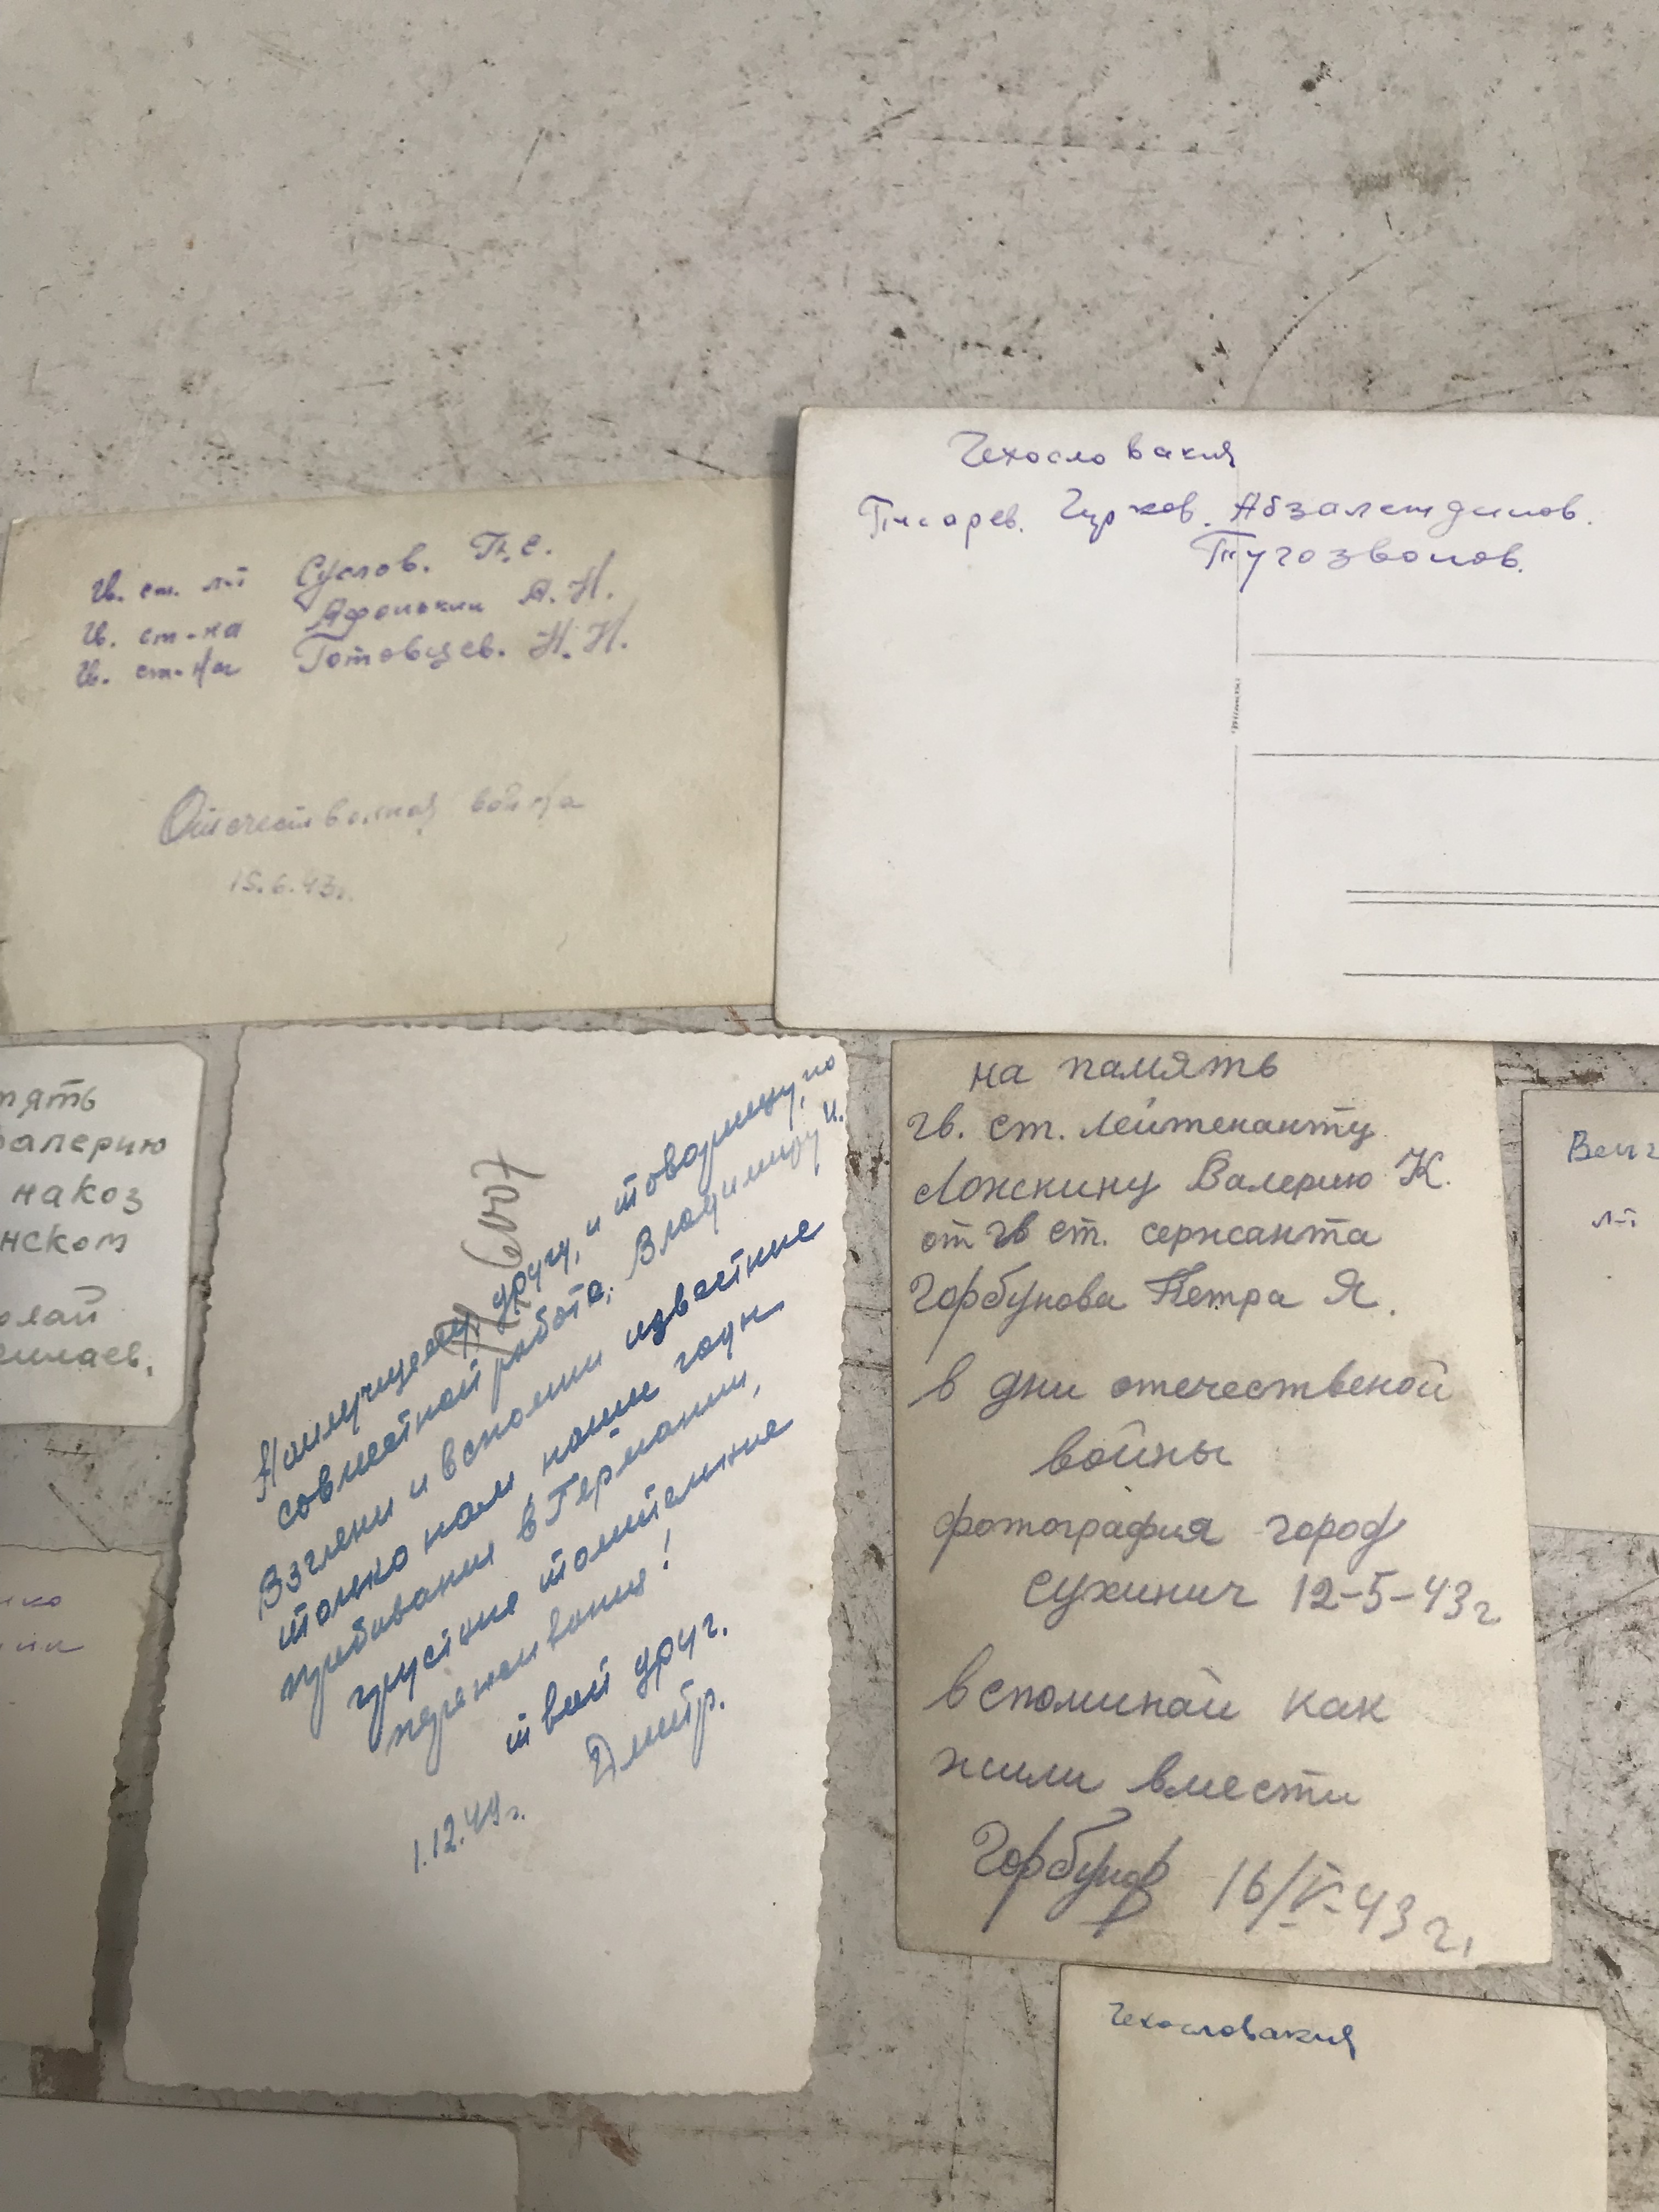 Чехословакия
Писарев. Гурков. Абзалетдинов.
Пугозвонов.
Гв. ст. л-т Суслов. П. С.
Гв. ст-на Афонькин А. Н.
Гв. ст-на Готовцев. Н. Н.
Отечественная война
15.6.43г.
мять
алерию
накоз
нском
олай
лаев.
6007
Наилучшему, другу, и товарищу, по
совместной работе, Владимиру И.
Взглени и вспомни известные
только нам наши годы
пребывания в Германии,
грустные томительные
переживания!
твой друг.
Дмитр.
1.12.49г.
на память
гв. ст. лейтенанту
Ложкину Валерию К.
от гв ст. сержанта
Горбунова Петра Я.
в дни отечественой
войны
фотография город
Сухинич 12-5-43г
вспоминай как
жили вмести
Горбунов 16/V-43г.
Венг
л-т
Чехословакия